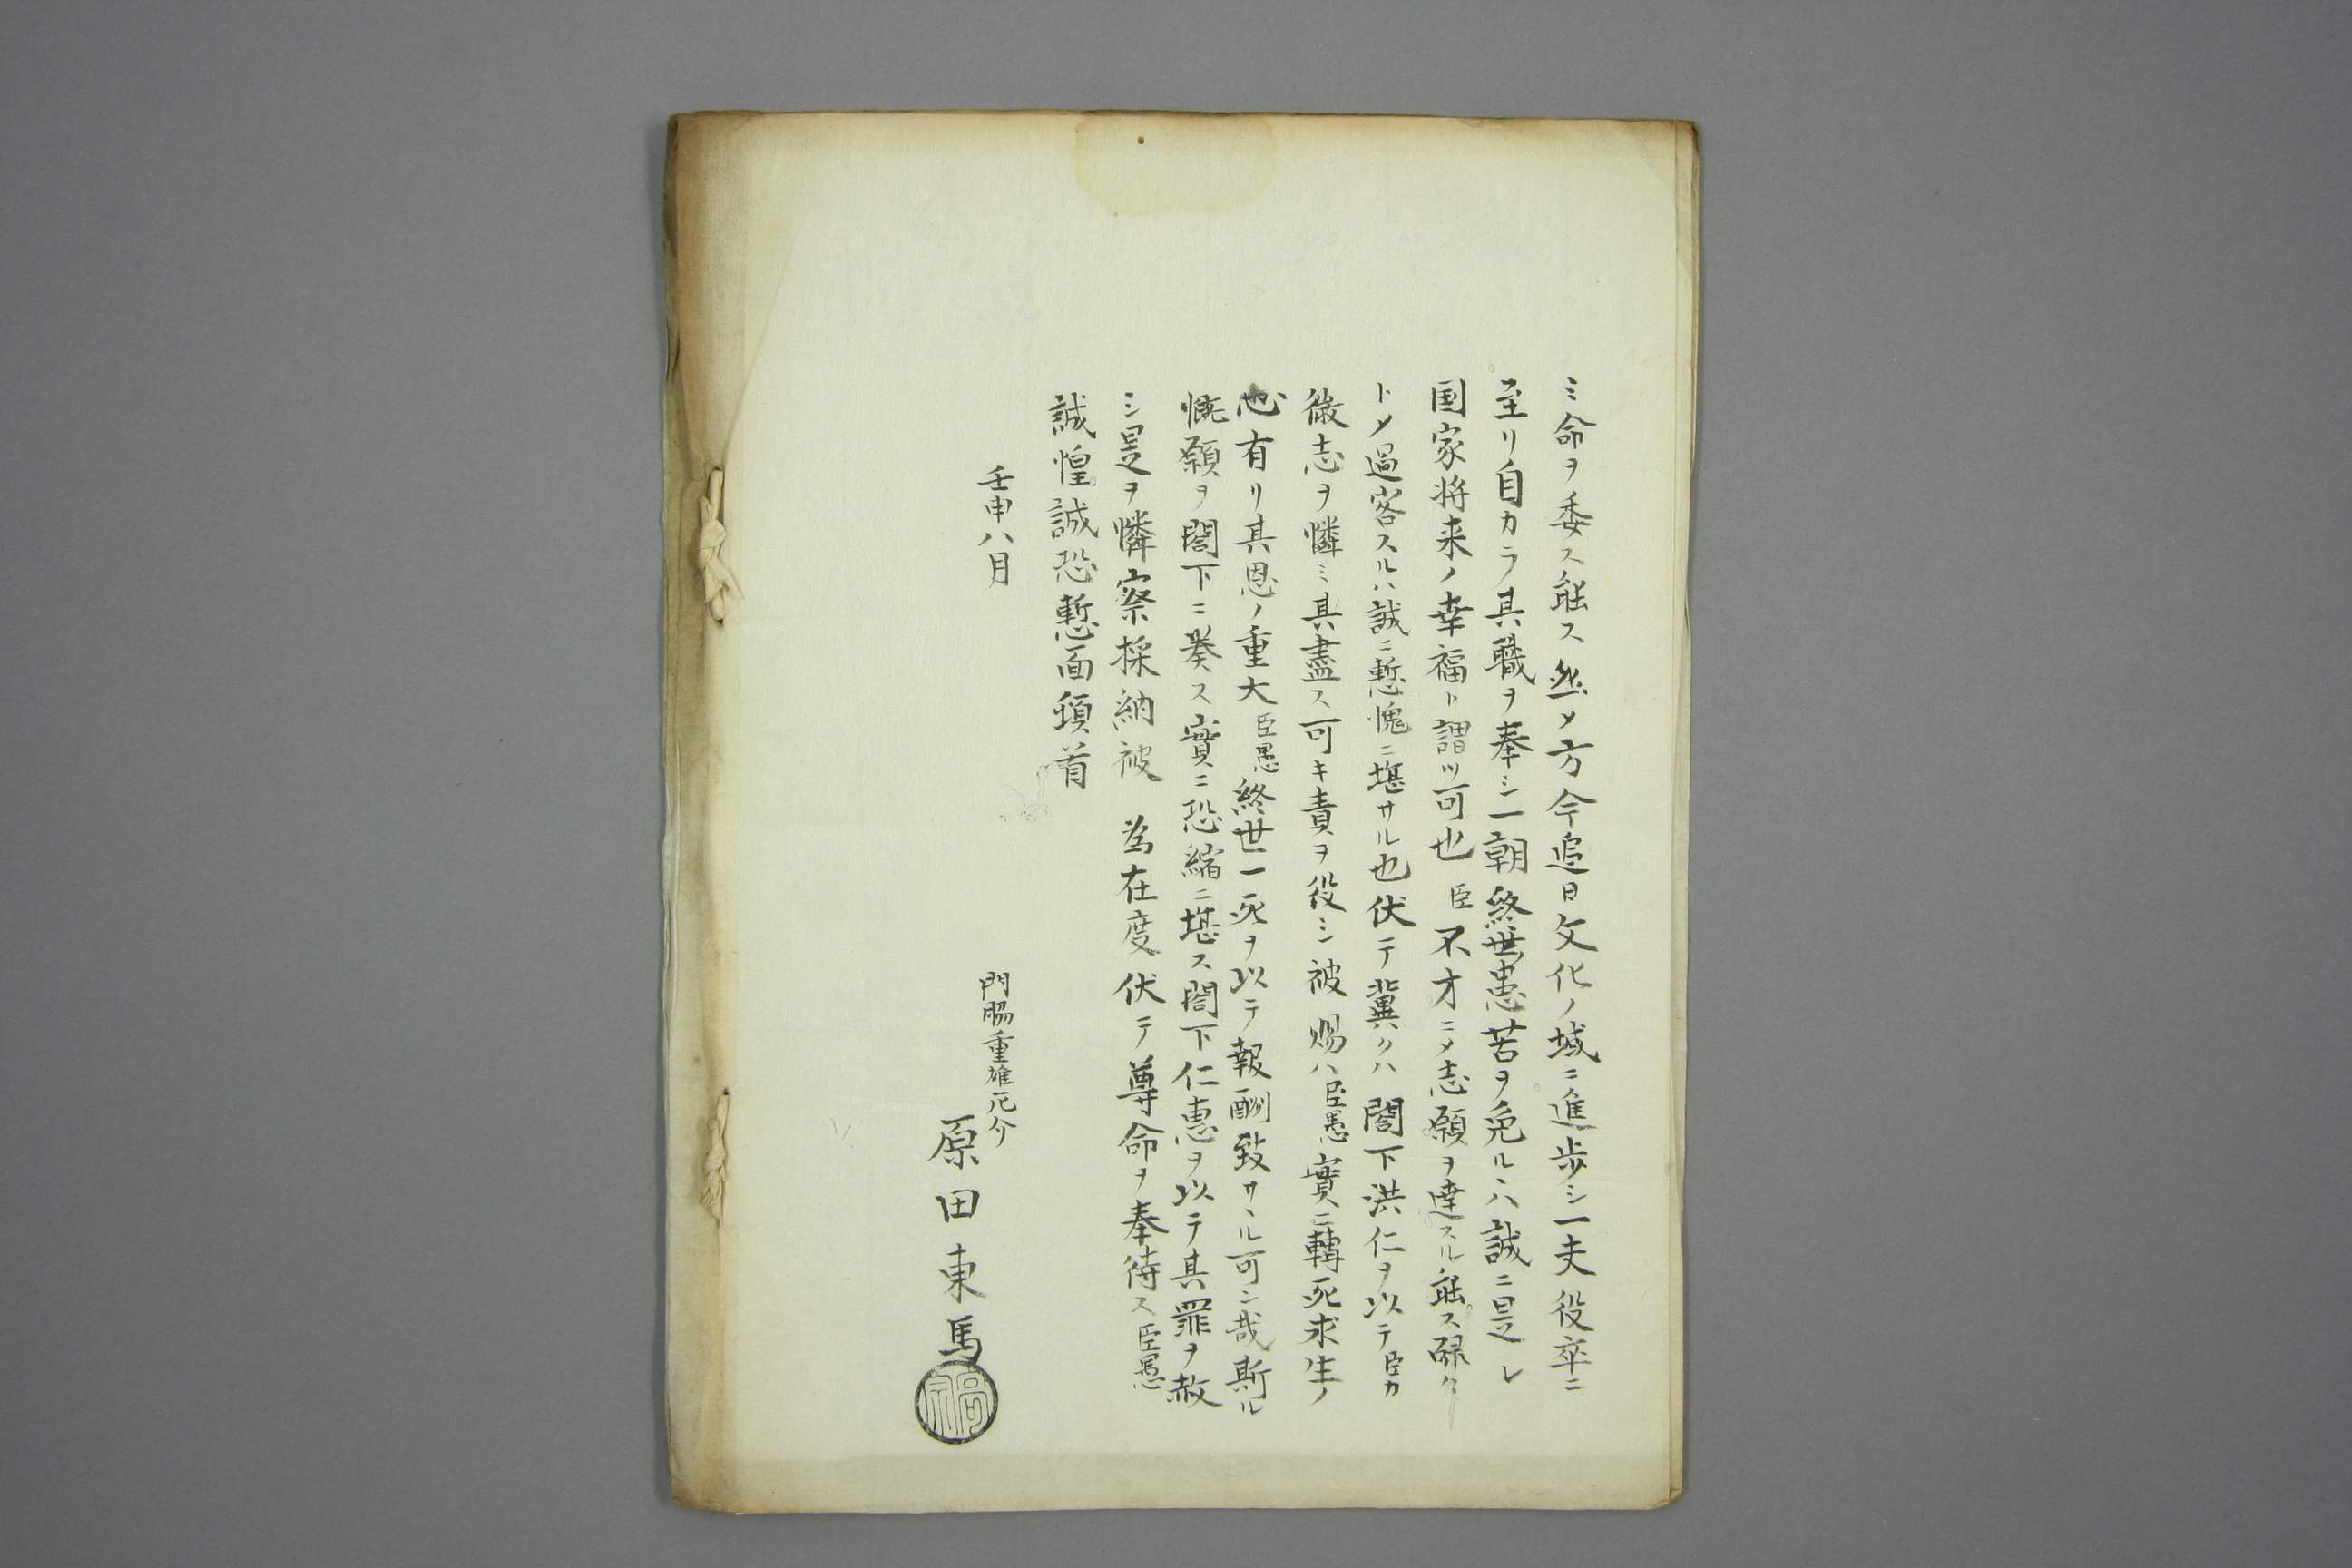 ミ命ヲ委ス能ス然メ方今追日文化ノ域ニ進歩シ一夫役卒ニ
至リ自カラ其職ヲ奉シ一朝終世患苦ヲ免ルヽハ誠ニ是レ
国家将来ノ幸福ト謂ツ可也臣不才ニメ志願ヲ達スル能ス碌々
トメ過客スルハ誠ニ慙愧ニ堪サル也伏テ冀クハ閤下洪仁ヲ以テ臣カ
微志ヲ憐ミ其盡ス可キ責ヲ役シ被賜ハ臣愚實ニ轉死求生ノ
心有リ其恩ノ重大臣愚終世一死ヲ以テ報酬致サヽル可ン哉斯ル
慨願ヲ閤下ニ奏ス實ニ恐縮ニ堪ス閤下仁恵ヲ以テ其罪ヲ赦
シ是ヲ憐察採納被 為在度伏テ尊命ヲ奉待ス臣愚
誠惶誠恐慙面頓首
壬申八月
門脇重雄厄介
原田東馬